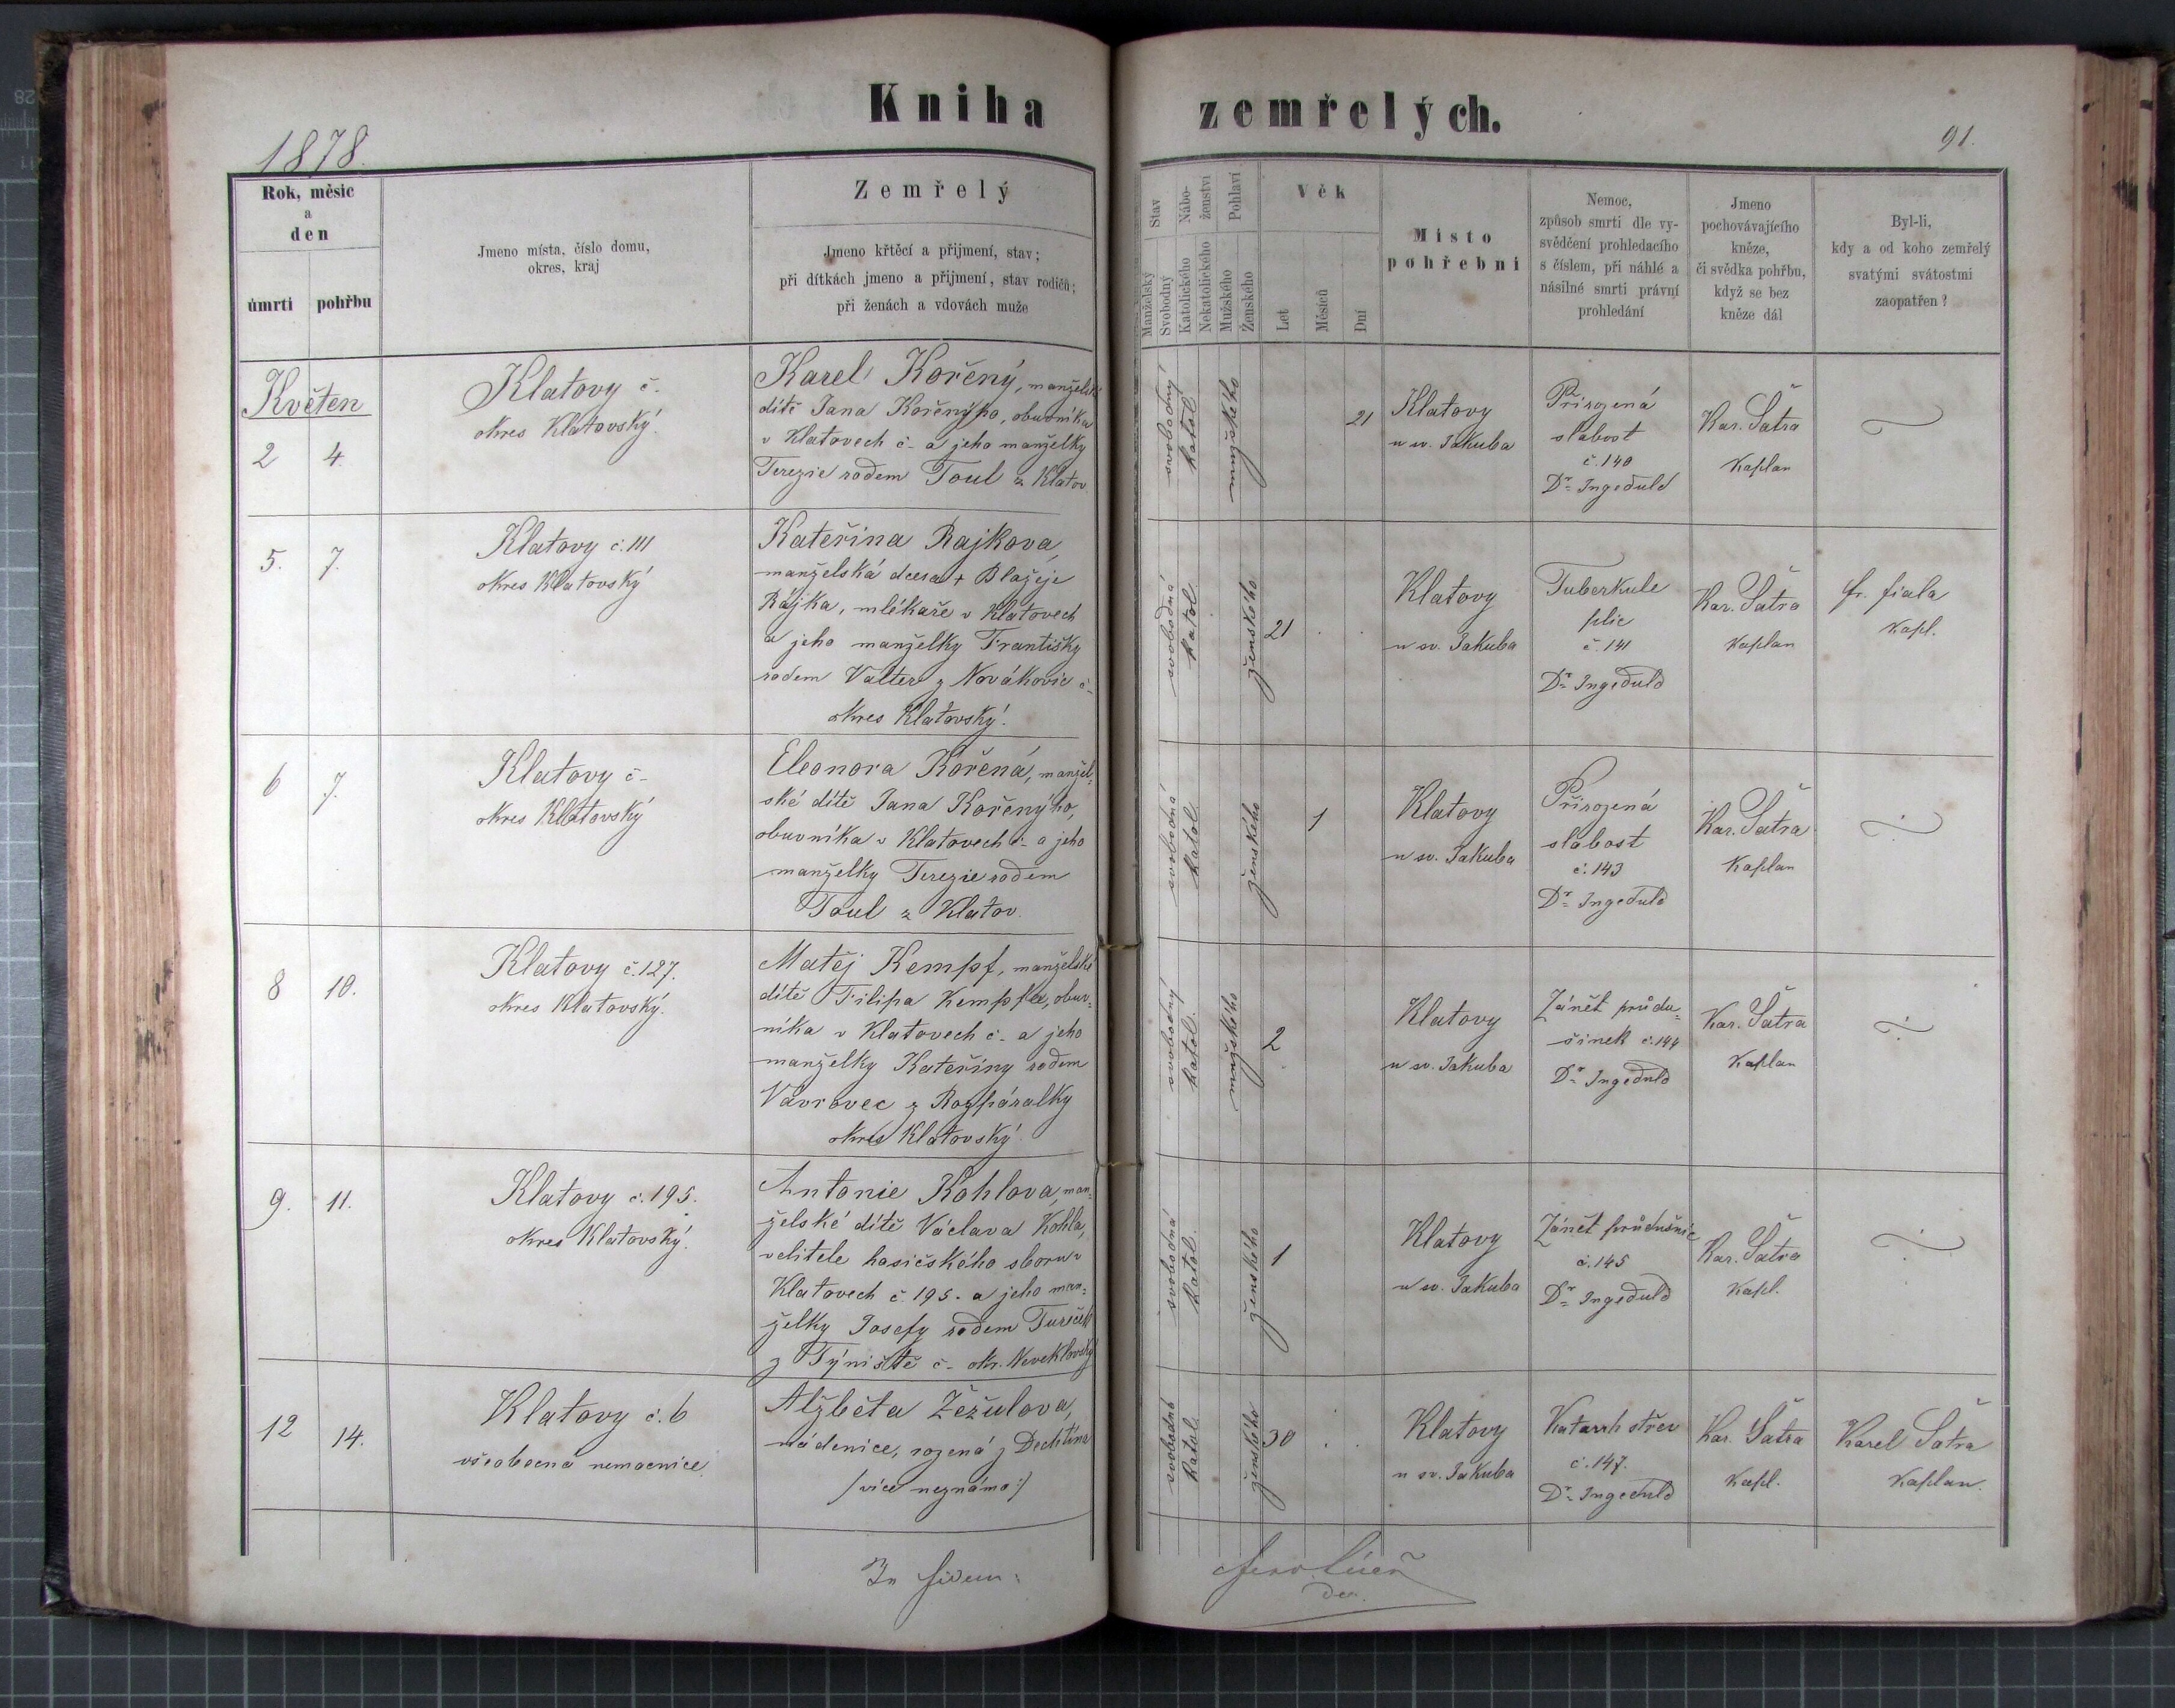 Kniha zemřelých.
1878.
91.
Rok, měsic
a
den
úmrtí
pohřbu
Jmeno místa, číslo domu,
okres, kraj
Zemřelý
Jmeno křtěcí a přijmení, stav;
při dítkách jmeno a přijmení, stav rodičů;
při ženách a vdovách muže
Stav
Manželský
Svobodný
Nábo-
ženství
Katolického
Nekatolického
Pohlaví
Mužského
Ženského
Věk
Let
Měsíců
Dní
Místo
pohřební
Nemoc,
způsob smrti dle vy-
svědčení prohledacího
s číslem, při náhlé a
násilné smrti právní
prohledání
Jmeno
pochovávajícího
kněze,
či svědka pohřbu,
když se bez
kněze dál
Byl-li,
kdy a od koho zemřelý
svatými svátostmi
zaopatřen?
Květen
2
4.
Klatovy č.
okres Klatovský.
Karel Kořený, manželské
dítě Jana Kořenýho, obuvníka
v Klatovech č - a jeho manželky
Terezie rodem Toul z Klatov.
svobodný
katol.
mužského
21
Klatovy
u sv. Jakuba
Přirozená
slabost
č. 140
Dr. Ingeduld
Kar. Šatra
Kaplan
5.
7.
Klatovy č. 111
okres Klatovský
Kateřina Rajkova,
manželská dcera + Blažeje
Rájka, mlékaře v Klatovech
a jeho manželky Františky
rodem Valter z Novákovic č -
okres Klatovský.
svobodná
katol.
ženského
21
Klatovy
u sv. Jakuba
Tuberkule
plic
č. 141
Dr. Ingeduld
Kar. Šatra
Kaplan
fr. fiala
Kapl.
6
7.
Klatovy č -
okres Klatovský
Eleonora Kořená, manžel-
ské dítě Jana Kořenýho,
obuvníka v Klatovech č - a jeho
manželky Terezie rodem
Toul z Klatov.
svobodná
katol.
ženského
1
Klatovy
u sv. Jakuba
Přirozená
slabost
č. 143
Dr. Ingeduld
Kar. Šatra
Kaplan
8
10.
Klatovy č. 127.
okres Klatovský.
Matěj Kempf, manželské
dítě Filipa Kempfa, obuv-
níka v Klatovech č - a jeho
manželky Kateřiny rodem
Vavrovec z Rozpáralky
okres Klatovský.
svobodný
katol.
mužského
2
Klatovy
u sv. Jakuba
Zánět průdu-
šinek č. 144
Dr. Ingeduld
Kar. Šatra
Kaplan
9.
11.
Klatovy č. 195.
okres Klatovský.
Antonie Kohlova, man-
želské dítě Václava Kohla,
velitele hasičského sboru v
Klatovech č. 195. a jeho man-
želky Josefy rodem
z Týniště č - okr. Neveklovský
svobodná
katol.
ženského
1
Klatovy
u sv. Jakuba
Zánět průdušnic
č. 145
Dr. Ingeduld
Kar. Šatra
Kapl.
12
14.
Klatovy č. 6
všeobecná nemocnice.
Alžběta Žežulova,
nádenice, rozená z Dechtína
/: více neznámo :/
svobodná
katol.
ženského
30
Klatovy
u sv. Jakuba
Katarrh střev
č. 147.
Dr. Ingeduld
Kar. Šatra
Kapl.
Karel Šatra
Kaplan.
In fidem: